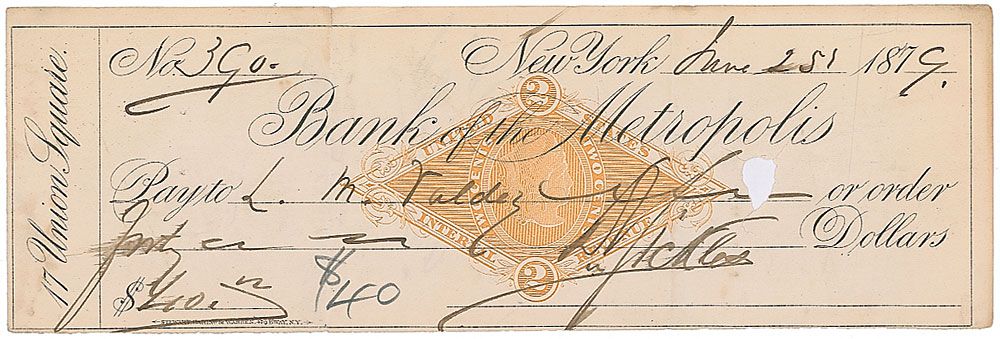 17 Union Square.
No. 390. New York June 25th 1879.
Bank of the Metropolis
Pay to L. M. Valdez or order
Forty Dollars
$40. $40
UNITED STATES
TWO CENTS
INTERNAL REVENUE
2
2